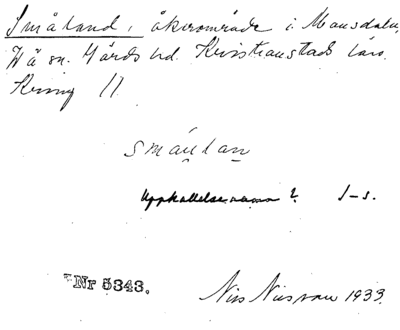 Småland, åkerområde i Mansdala,
Vä sn. Gärds hd. Kristianstads län.
Kring 11
småulan
Uppkallelsenamn? J-s.
Nr 5343.
Nils Nilsson 1933.